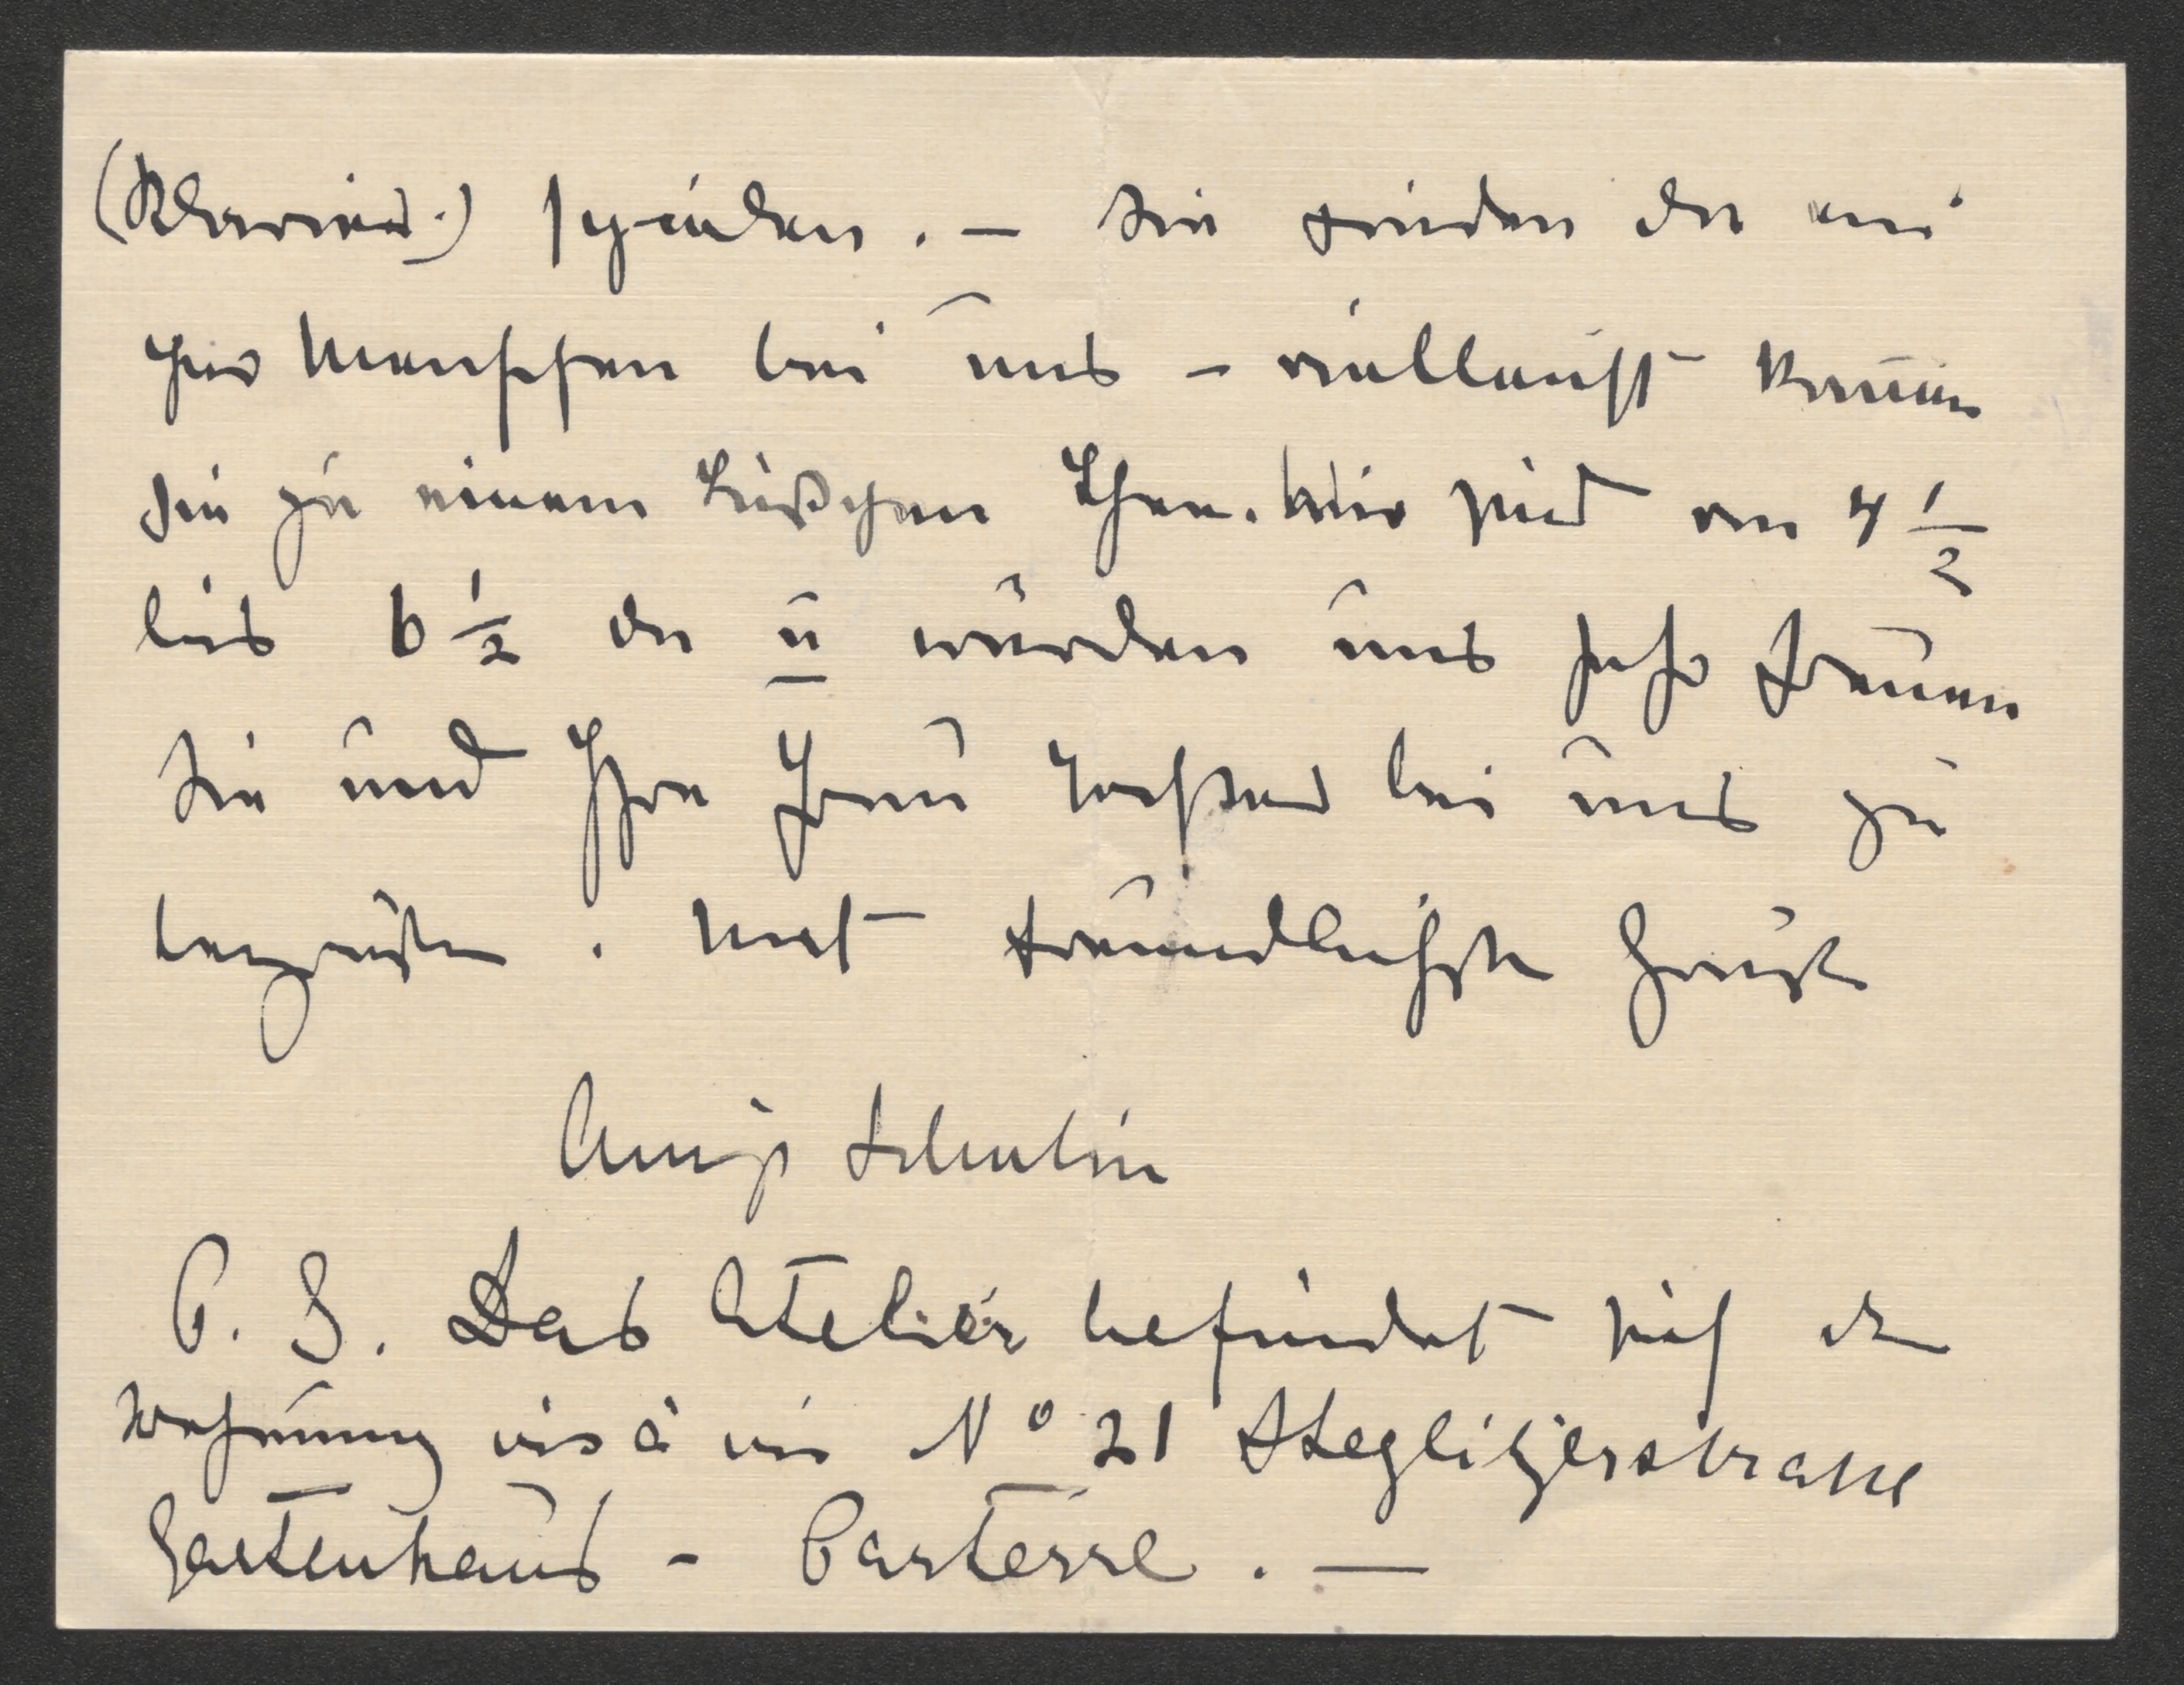 (Klavier.) spielen. – Sie finden da ein
paar Menschen bei uns – vielleicht kommen
Sie zu einem Täßchen Thee. Wir sind von 4 1/2
bis 6 1/2 da u würden uns sehr freuen
Sie und Ihre Frau bei uns zu
begrüßen. Mit freundlichsten Grüßen
P. S. Das Atelier befindet sich der
Wohnung vis à vis N° 21 Steglitzerstrasse
Gartenhaus – Parterre. —